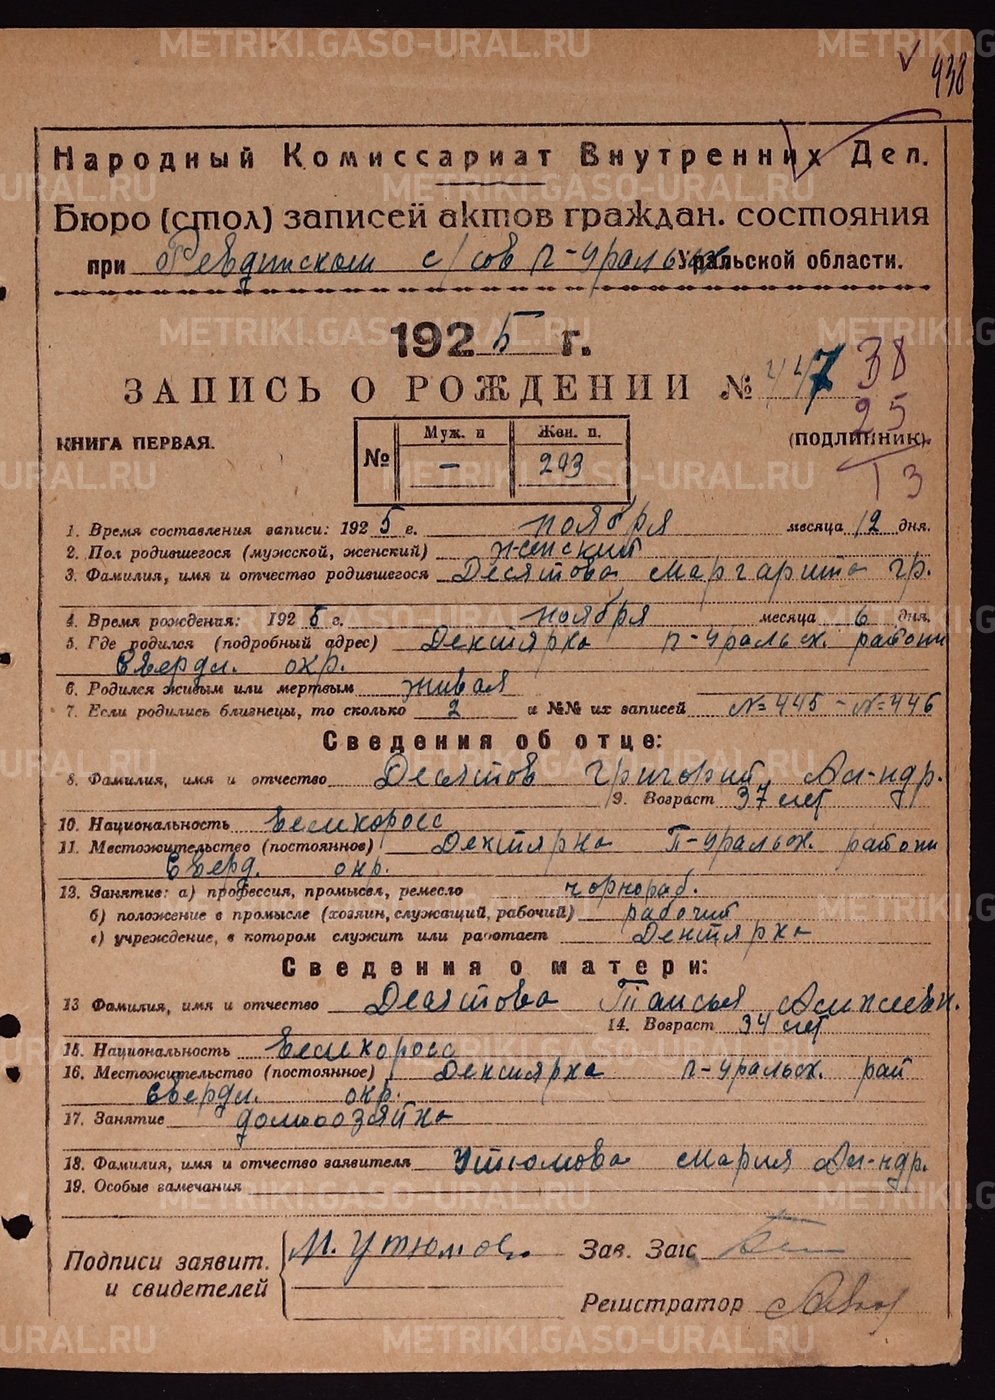 938
Народный Комиссариат Внутренних Дел.
Бюро (стол) записей актов граждан. состояния
при Ревдинском с/сов п-уральск Уральской области.
1925 г.
ЗАПИСЬ О РОЖДЕНИИ № 447
38
25
13
КНИГА ПЕРВАЯ.
(ПОДЛИННИК).
№ Муж. п Жен. п.
— 293
1. Время составления записи: 1925 г. ноября месяца 12 дня.
2. Пол родившегося (мужской, женский) женский
3. Фамилия, имя и отчество родившегося Десятова Маргарита Гр.
4. Время рождения: 1925 г. ноября месяца 6 дня.
5. Где родился (подробный адрес) Дектярка п-уральск. района
Свердл. окр.
6. Родился живым или мертвым живая
7. Если родились близнецы, то сколько 2 и №№ их записей №445 - №446
Сведения об отце:
8. Фамилия, имя и отчество Десятов Григорий Ал-ндр.
9. Возраст 37 лет
10. Национальность Великоросс
11. Местожительство (постоянное) Дектярка П-уральск. района
Сверд. окр.
13. Занятие: а) профессия, промысел, ремесло чорнораб.
б) положение в промысле (хозяин, служащий, рабочий) рабочий
в) учреждение, в котором служит или работает Дектярка
Сведения о матери:
13 Фамилия, имя и отчество Десятова Таисья
14. Возраст 34 лет
15. Национальность Великоросс
16. Местожительство (постоянное) Дектярка п-уральск. рай
Свердл. окр.
17. Занятие домоозяйка
18. Фамилия, имя и отчество заявителя Утюмова Мария Ал-ндр.
19. Особые замечания
Подписи заявит. и свидетелей
М. Утюмова
Зав. Загс
Регистратор
METRIKI.GASO-URAL.RU